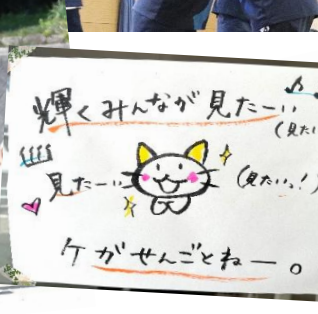 輝くみんなが見たーい
(見たい
見たーい
(見たいっ!)
ケがせんごとねー。